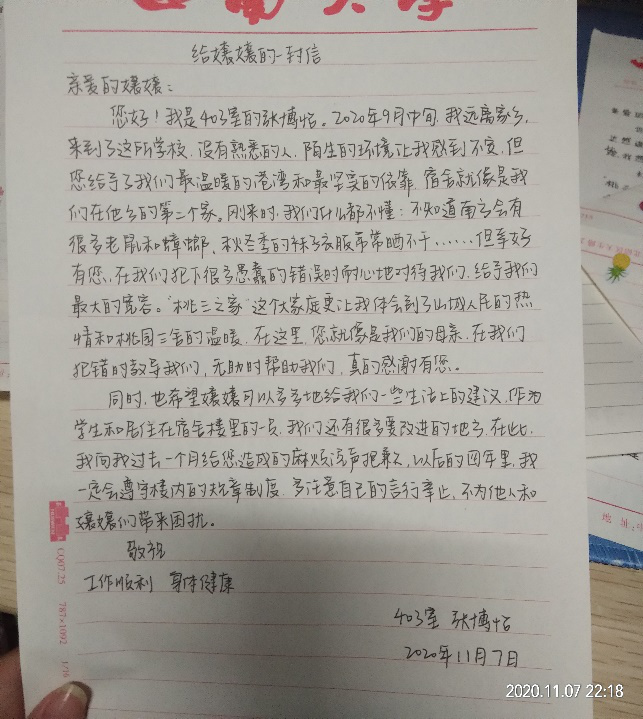 西南大学
给嬢嬢的一封信
亲爱的嬢嬢：
您好！我是403室的张博怡。2020年9月中旬，我远离家乡，
来到了这所学校，没有熟悉的人，陌生的环境让我感到不安，但
您给予了我们最温暖的港湾和最坚实的依靠，宿舍就像是我
们在他乡的第二个家。刚来时，我们什么都不懂：不知道南方会有
很多老鼠和蟑螂、秋冬季的袜子衣服常常晒不干……但幸好
有您，在我们犯下很多愚蠢的错误时耐心地对待我们，给予我们
最大的宽容。“桃三之家”这个大家庭更让我体会到了山城人民的热
情和桃园三舍的温暖，在这里，您就像是我们的母亲，在我们
犯错时教导我们，无助时帮助我们，真的感谢有您。
同时，也希望嬢嬢可以多多地给我们一些生活上的建议，作为
学生和居住在宿舍楼里的一员，我们还有很多要改进的地方，在此，
我向我过去一个月给您造成的麻烦说声抱歉，以后的四年里，我
一定会遵守楼内的规章制度，多注意自己的言行举止，不为他人和
嬢嬢们带来困扰。
敬祝
工作顺利 身体健康
403室 张博怡
2020年11月7日
GQ07.25 787×1092 1/16
2020.11.07 22:18